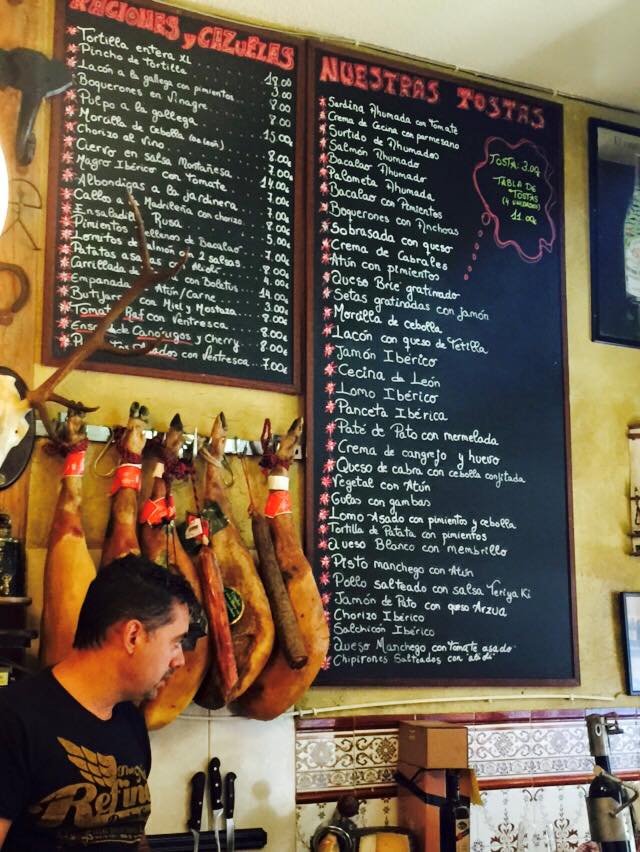 RACIONES y CAZUELAS
Tortilla entera XL 18.00
Pincho de tortilla 3.00
Lacón a la gallega con pimientos 8.00
Boquerones en vinagre 8.00
Pulpo a la gallega 15.00
Morcilla de Cebolla (de León) 8.00
Chorizo al vino 7.00
Ciervo en salsa Montañesa 14.00€
Magro Ibérico con tomate 7.00€
Albondigas a la jardinera 7.00€
Callos a la Madrileña con chorizo 8.00€
Ensaladilla Rusa 5.00€
Pimientos rellenos de Bacalao 7.00€
Lomitos de Salmón a 2 salsas 8.00€
Patatas asadas Alioli 4.00€
Carrillada con Boletus 14.00€
Empanada Atún/Carne 3.00€
Butifarra con Miel y Mostaza 8.00€
Tomate Raf con Ventresca 8.00€
Ensa de Canónigos y Cherry 8.00€
P ados con Ventresca 7.00€
NUESTRAS TOSTAS
Sardina Ahumada con tomate
Crema de Cecina con parmesano
Surtido de Ahumados
Salmón Ahumado
Bacalao Ahumado
Palometa Ahumada
Bacalao con Pimientos
Boquerones con Anchoas
Sobrasada con queso
Crema de Cabrales
Atún con pimientos
Queso Brie gratinado
Setas gratinadas con jamón
Morcilla de cebolla
Lacón con queso de Tetilla
Jamón Ibérico
Cecina de León
Lomo Ibérico
Panceta Ibérica
Paté de Pato con mermelada
Crema de cangrejo y huevo
Queso de cabra con cebolla confitada
Vegetal con Atún
Gulas con gambas
Lomo Asado con pimientos y cebolla
Tortilla de Patata con pimientos
Queso Blanco con membrillo
Pisto manchego con Atún
Pollo salteado con salsa Teriyaki
Jamón de Pato con queso Arzua
Chorizo Ibérico
Salchicón Ibérico
Queso Manchego con tomate asado
Chipirones Salteados con alioli
TOSTA: 3.00€
TABLA DE
TOSTAS
(4 UNIDADES)
11.00€
The
Refin